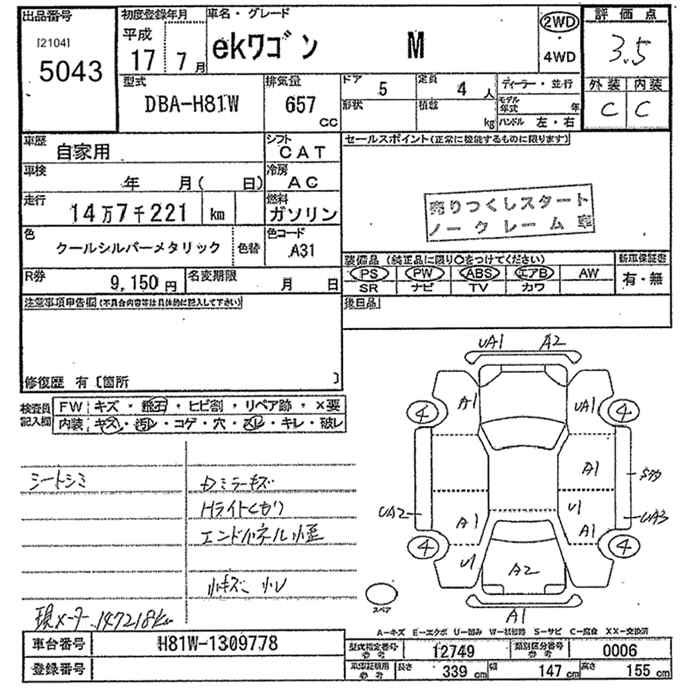 出品番号
[2104]
5043
初度登録年月
平成
17 7月
車名・グレード
ekワゴン M
2WD
・
4WD
評価点
3.5
外装 内装
C C
型式
DBA-H81W
排気量
657
CC
ドア 5
形状
定員 4人
積載 kg
ディーラー・並行
モデル年式 年
ハンドル 左・右
車歴
自家用
シフト
CAT
車検
年 月( 日)
冷房
AC
走行
14万7千221 km
燃料
ガソリン
色
クールシルバーメタリック 色替
色コード
A31
R券
9,150円
名変期限
月 日
セールスポイント(正常に機能するものに限ります)
売りつくしスタート
ノークレーム
装備品(純正品に限り○をつけてください)
PS PW ABS エアB AW
SR ナビ TV カワ
新車保証書
有・無
後日品
注意事項申告欄(不具合内容等は具体的に記入して下さい)
修復歴 有〔箇所 〕
検査員
記入欄
FW キズ・飛石・ヒビ割・リペア跡・×要
内装 キズ・汚レ・コゲ・穴・スレ・キレ・破レ
シートシミ
Dミラーキズ
Hライトくもり
エンドパネル小歪
小キズ 小凹
現メーター147218km
UA1 A2
A1 UA1
4 4
A1
UA2 UA3
A1 U1 A1
4 4
U1
A2
A1
スペア
A-キズ E-エクボ U-凹み W-波 S-サビ C-腐食 XX-交換済
車台番号
H81W-1309778
登録番号
型式指定番号
参考
12749
類別区分番号
参考
0006
長さ 339 cm 幅 147 cm 高さ 155 cm